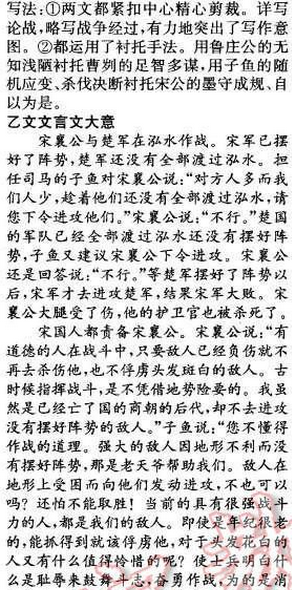 写法:①两文都紧扣中心精心剪裁。详写
论战,略写战争经过,有力地突出了写作意
图。②都运用了衬托手法。用鲁庄公的无
知浅陋衬托曹刿的足智多谋,用子鱼的随
机应变、杀伐决断衬托宋公的墨守成规、自
以为是。
乙文文言文大意
宋襄公与楚军在泓水作战。宋军已摆
好了阵势,楚军还没有全部渡过泓水。担
任司马的子鱼对宋襄公说:“对方人多而我
们人少,趁着他们还没有全部渡过泓水,请
您下令进攻他们。”宋襄公说:“不行。”楚国
的军队已经全部渡过泓水还没有摆好阵
势,子鱼又建议宋襄公下令进攻。宋襄公
还是回答说:“不行。”等楚军摆好了阵势以
后,宋军才去进攻楚军,结果宋军大败。宋
襄公大腿受了伤,他的护卫官也被杀死了。
宋国人都责备宋襄公。宋襄公说:“有
道德的人在战斗中,只要敌人已经负伤就不
再去杀伤他,也不俘虏头发斑白的敌人。古
时候指挥战斗,是不凭借地势险要的。我虽
然是已经亡了国的商朝的后代,却不去进攻
没有摆好阵势的敌人。”子鱼说:“您不懂得
作战的道理。强大的敌人因地形不利而没
有摆好阵势,那是老天爷帮助我们。敌人在
地形上受困而向他们发动进攻,不也可以
吗?还怕不能取胜!当前的具有很强战斗
力的人,都是我们的敌人。即使是年纪很老
的,能抓得到就该俘虏他,对于头发花白的
人又有什么值得怜惜的呢?使士兵明白什
么是耻辱来鼓舞斗志,奋勇作战,为的是消